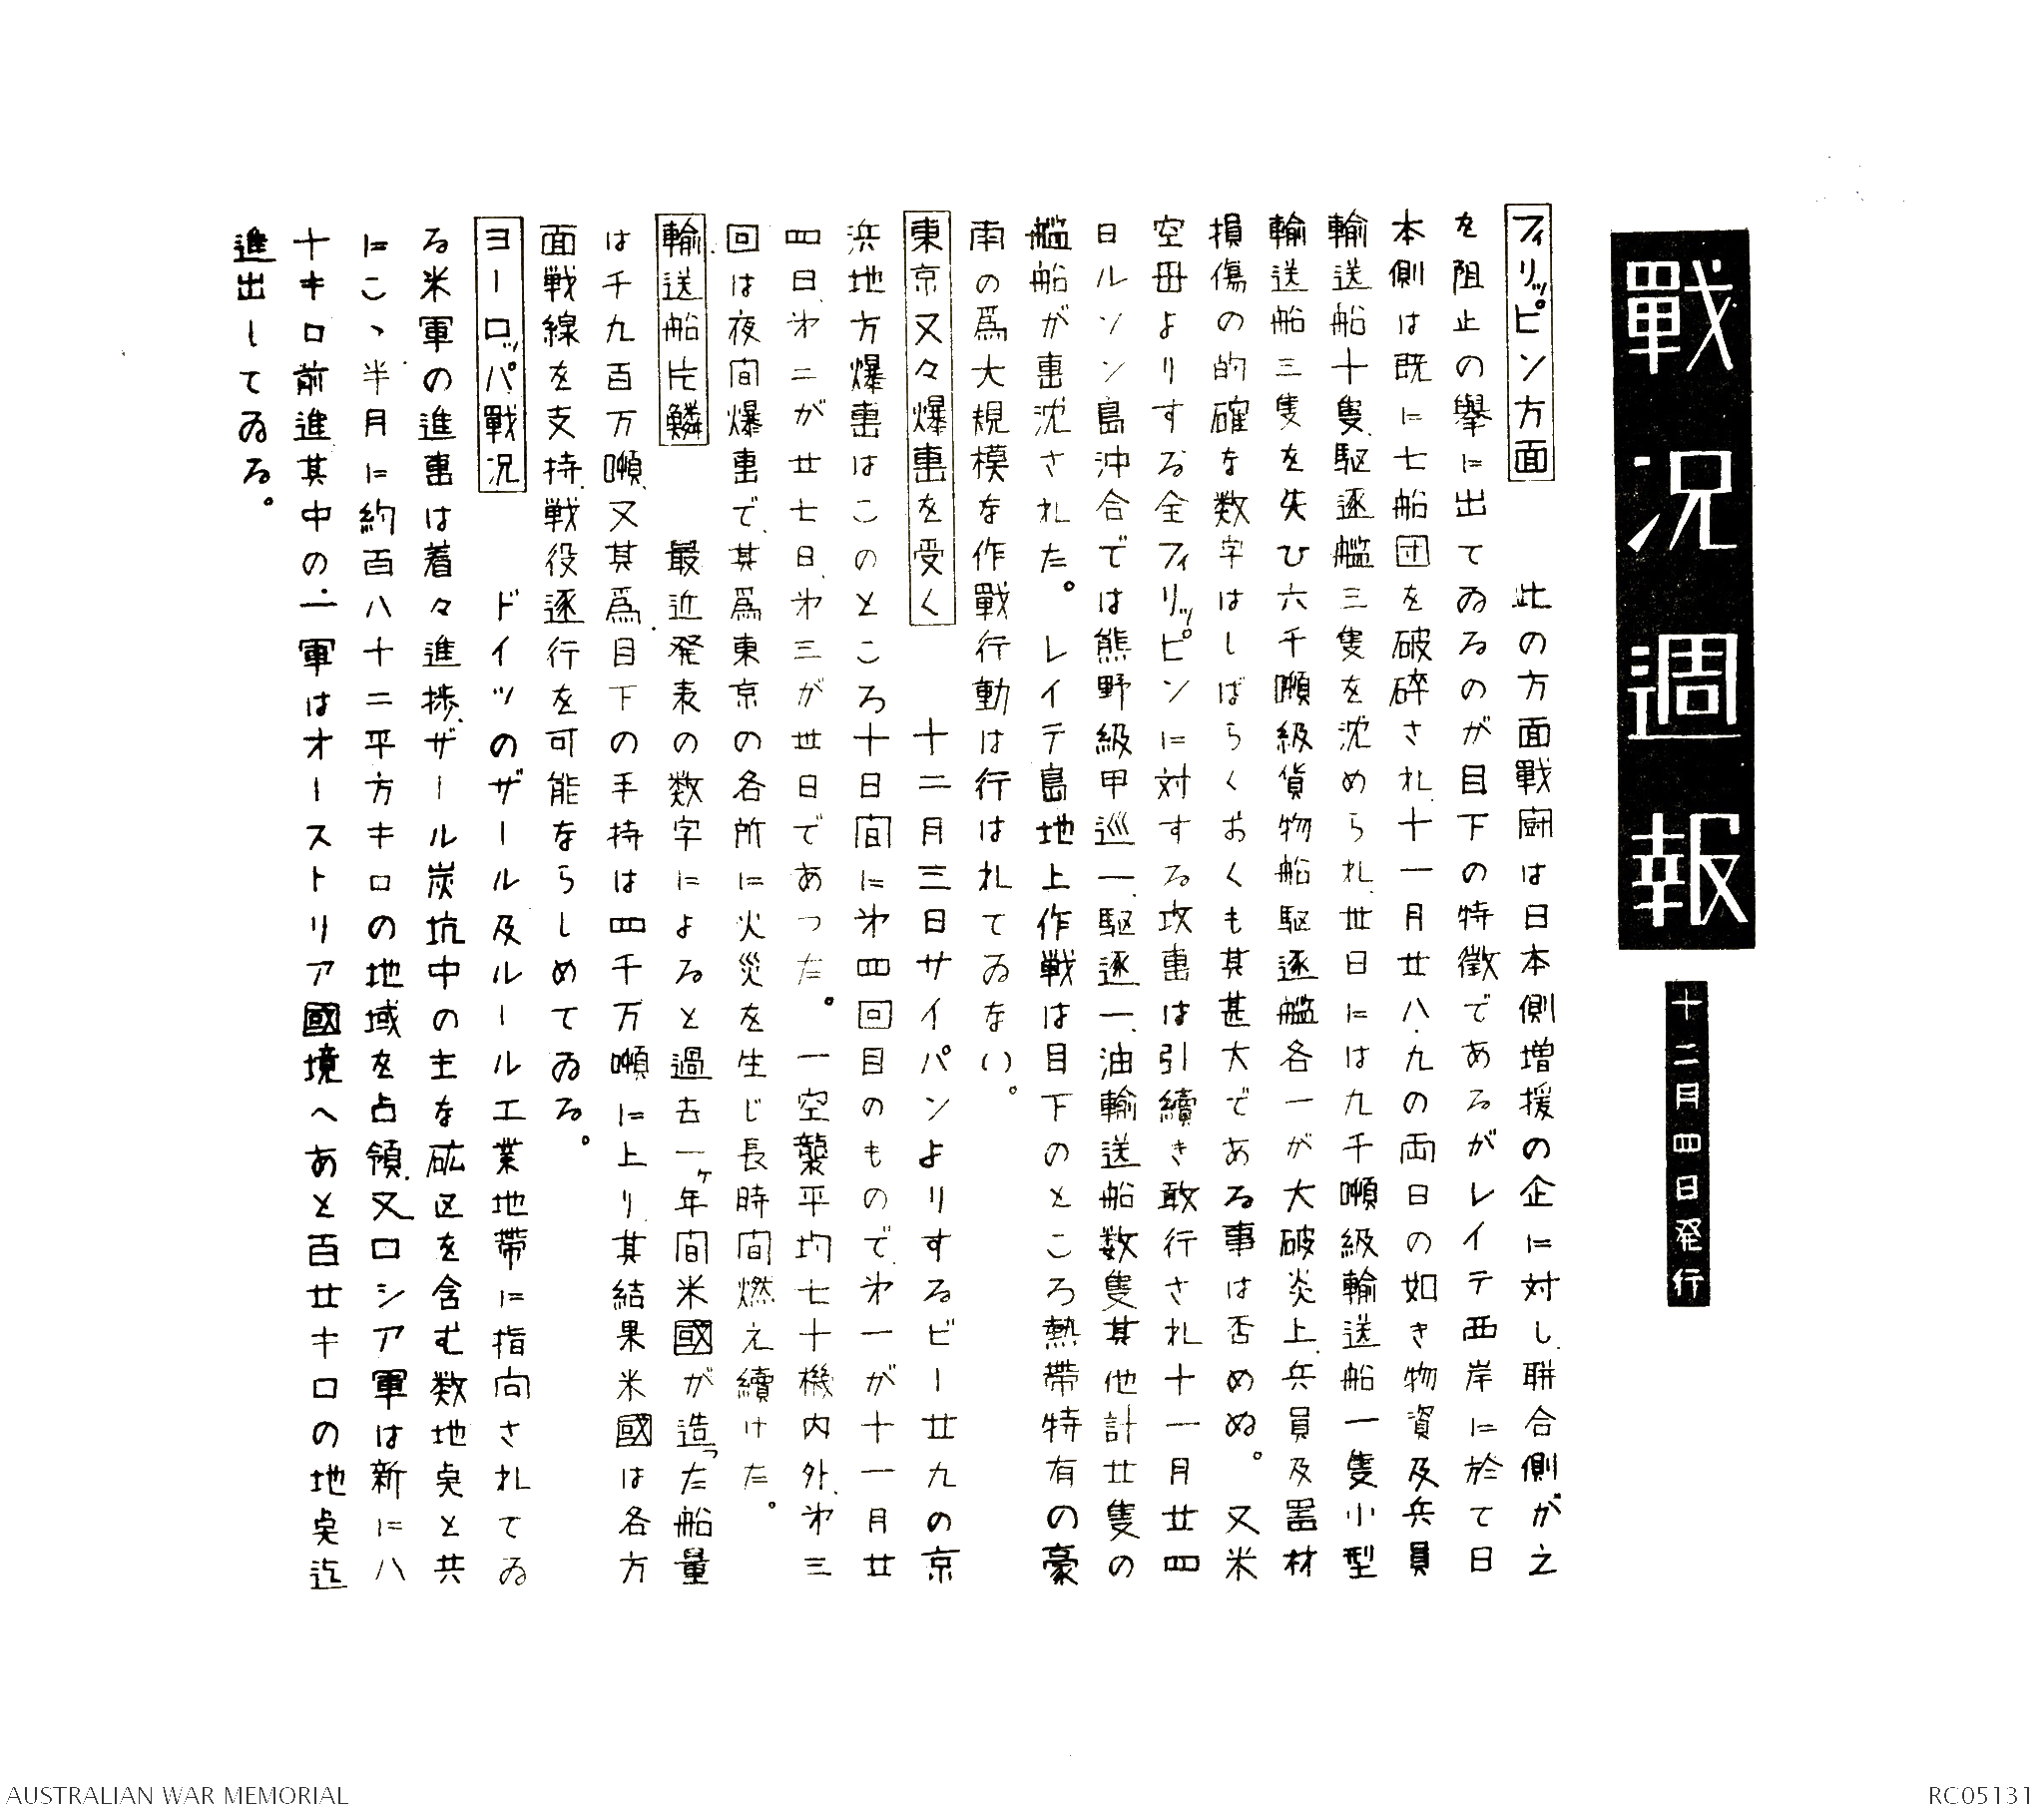 戰況週報
十二月四日発行
フィリッピン方面　此の方面戰闘は日本側増援の企に対し、聯合側が之
を阻止の擧に出てゐるのが目下の特徴であるがレイテ西岸に於て日
本側は既に七船団を破砕され、十一月廿八.九の両日の如き物資及兵員
輸送船十隻、駆逐艦三隻を沈められ、丗日には九千噸級輸送船一隻小型
輸送船三隻を失ひ六千噸級貨物船駆逐艦各一が大破炎上、兵員及噐材
損傷の的確な数字はしばらくおくも其甚大である事は否めぬ。又米
空母よりする全フィリッピンに対する攻撃は引続き敢行され十一月廿四
日ルソン島沖合では熊野級甲巡一、駆逐一、油輸送船数隻其他計廿隻の
艦船が撃沈された。レイテ島地上作戦は目下のところ熱帯特有の豪
雨の爲大規模な作戰行動は行はれてゐない。
東京又々爆撃を受く　十二月三日サイパンよりするビー廿九の京
浜地方爆撃はこのところ十日間に第四回目のもので、第一が十一月廿
四日、第二が廿七日、第三が丗日であった。一空襲平均七十機内外、第三
回は夜間爆撃で、其爲東京の各所に火災を生じ長時間燃え續けた。
輸送船片鱗　最近発表の数字によると過去一ヶ年間米國が造った船量
は千九百万噸、又其爲、目下の手持は四千万噸に上り、其結果米國は各方
面戦線を支持、戦役逐行を可能ならしめてゐる。
ヨーロッパ戰況　ドイツのザール及ルール工業地帯に指向されてゐ
る米軍の進撃は着々進捗、ザール炭坑中の主な砿区を含む数地点と共
にこゝ半月に約百八十二平方キロの地域を占領、又ロシア軍は新に八
十キロ前進其中の一軍はオーストリア國境へあと百廿キロの地点迄
進出してゐる。
AUSTRALIAN WAR MEMORIAL
RC05131